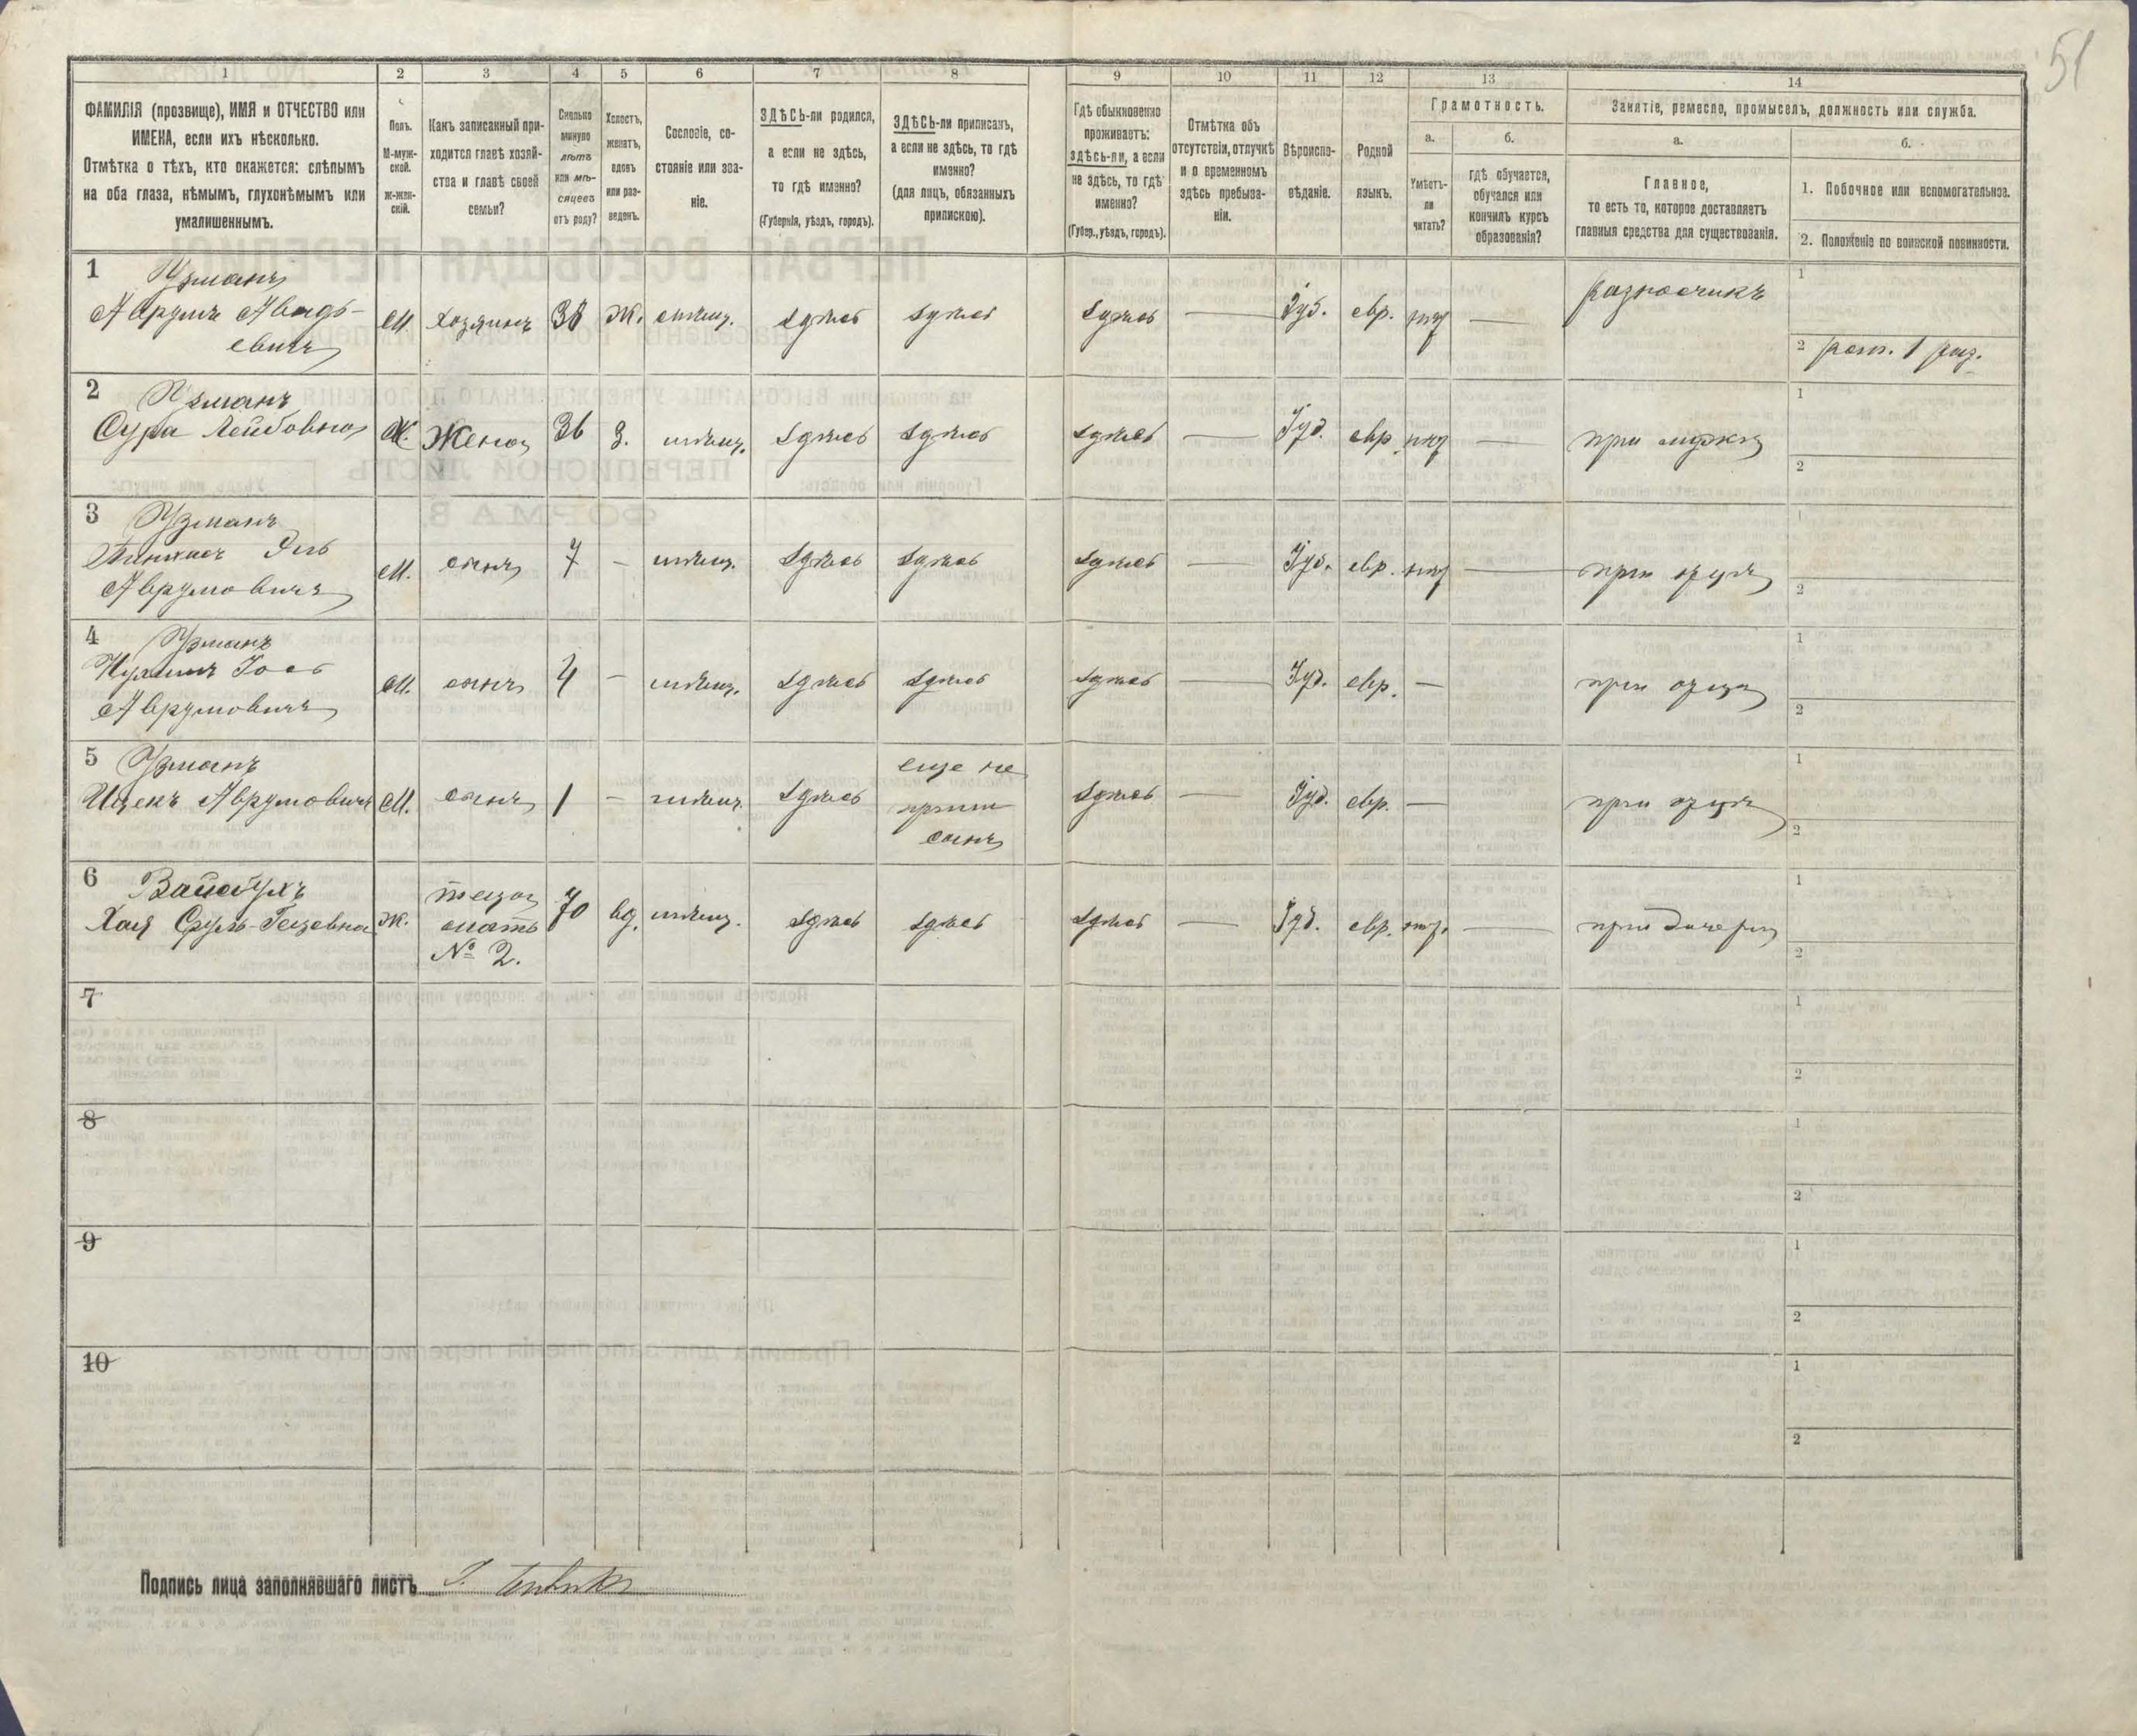 51
1
2
3
4
5
6
7
8
9
10
11
12
13
14
ФАМИЛІЯ (прозвище), ИМЯ и ОТЧЕСТВО или
ИМЕНА, если ихъ нѣсколько.
Отмѣтка о тѣхъ, кто окажется: слѣпымъ
на оба глаза, нѣмымъ, глухонѣмымъ или
умалишеннымъ.
Полъ.
М-муж-
ской.
Ж-жен-
скій.
Какъ записанный при-
ходится главѣ хозяй-
ства и главѣ своей
семьи?
Сколько
минуло
лѣтъ
или мѣ-
сяцевъ
отъ роду?
Холостъ,
женатъ,
вдовъ
или раз-
веденъ.
Сословіе, со-
стояніе или зва-
ніе.
ЗДѢСЬ-ли родился,
а если не здѣсь,
то гдѣ именно?
(Губернія, уѣздъ, городъ).
ЗДѢСЬ-ли приписанъ,
а если не здѣсь, то гдѣ
именно?
(для лицъ, обязанныхъ
припискою).
Гдѣ обыкновенно
проживаетъ:
здѣсь-ли, а если
не здѣсь, то гдѣ
именно?
(Губер., уѣздъ, городъ).
Отмѣтка объ
отсутствіи, отлучкѣ
и о временномъ
здѣсь пребыва-
ніи.
Вѣроиспо-
вѣданіе.
Родной
языкъ.
Грамотность.
а.
Умѣетъ-
ли
читать?
б.
гдѣ обучается,
обучался или
кончилъ курсъ
образованія?
Занятіе, ремесло, промыселъ, должность или служба.
а.
Главное,
то есть то, которое доставляетъ
главныя средства для существованія.
б.
1. Побочное или вспомогательное.
2. Положеніе по воинской повинности.
1 Узманъ
Аврумъ Авадь-
евичъ
М. Хозяинъ 38 Ж. мѣщ. здѣсь здѣсь здѣсь — Іуд. евр. нѣт — разносчикъ
1
2 рат. 1 раз.
2 Узманъ
Сура Лейбовна Ж. Жена 36 З. мѣщ. здѣсь здѣсь здѣсь — Іуд. евр. нѣт — при мужѣ
1
2
3 Узманъ
Пинхас
Аврумовичъ
М. сынъ 7 - мѣщ. здѣсь здѣсь здѣсь — Іуд. евр. нѣт — при отцѣ
1
2
4 Узманъ
Аврумовичъ
М. сынъ 4 - мѣщ. здѣсь здѣсь здѣсь — Іуд. евр. — при отцѣ
1
2
5 Узманъ
Ицекъ Аврумовичъ М. сынъ 1 - мѣщ. здѣсь
еще не
припи
санъ
здѣсь — Іуд. евр. — при отцѣ
1
2
6
Хая Сруль- Ж.
теща
мать
№ 2.
70 вд. мѣщ. здѣсь здѣсь здѣсь — Іуд. евр. нѣт. — при дочери
1
2
7
1
2
8
1
2
9
1
2
10
1
2
Подпись лица заполнявшаго листъ